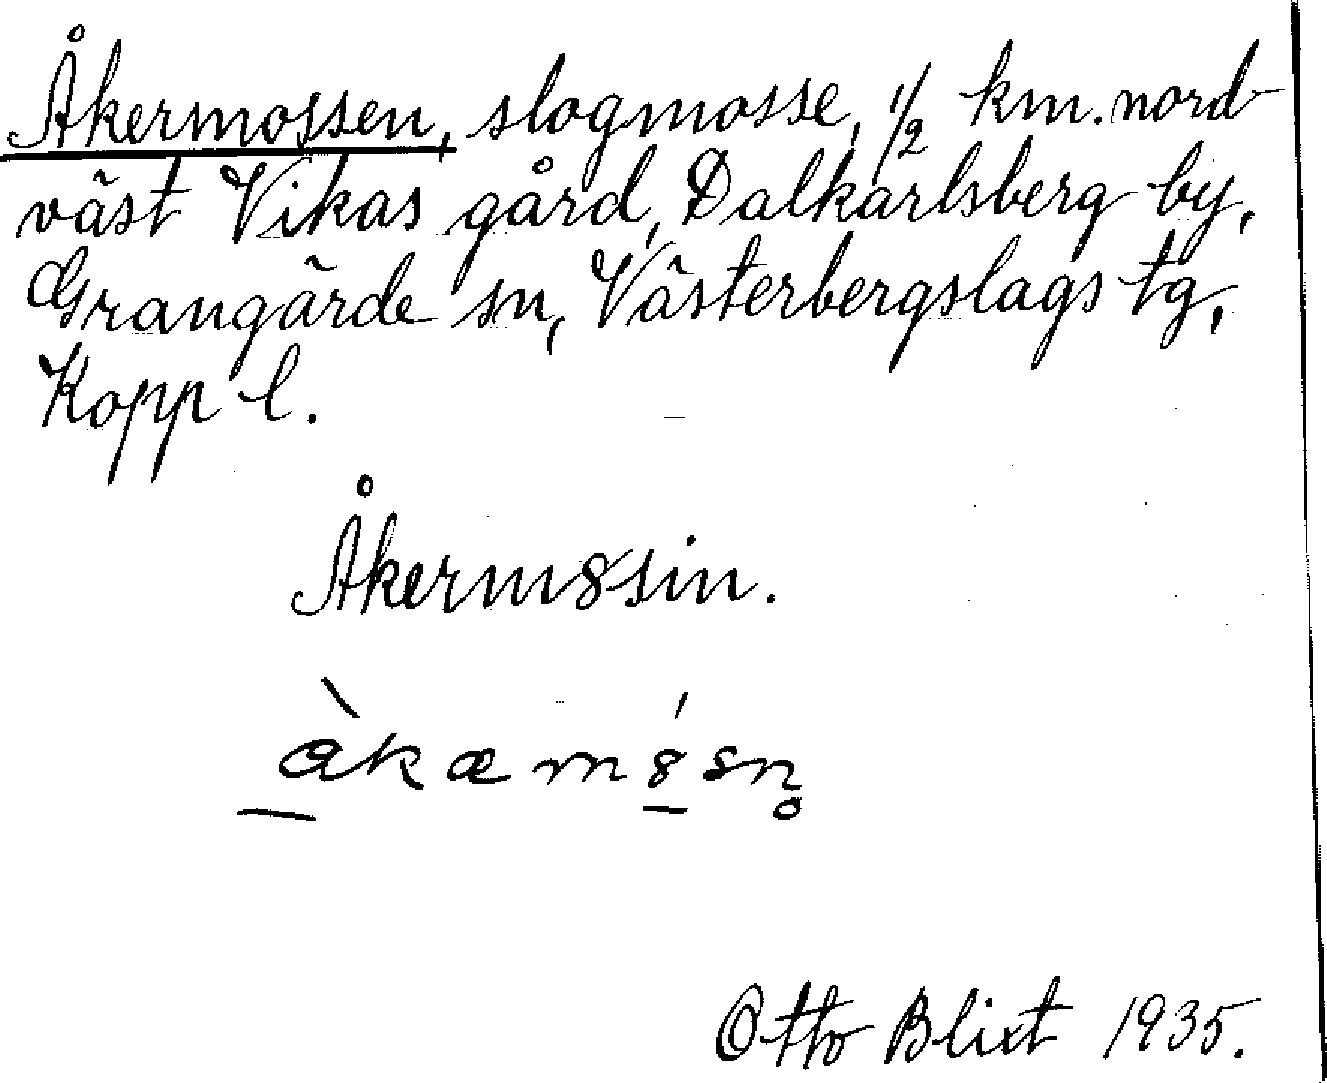 Åkermossen, slogmosse, 1/2 km. nord-
väst Vikas gård, Dalkarlsberg by,
Grangärde sn, Västerbergslags tg,
Kopp l.
Åkerm8sin.
àkæm8́sn̥
Otto Blixt 1935.